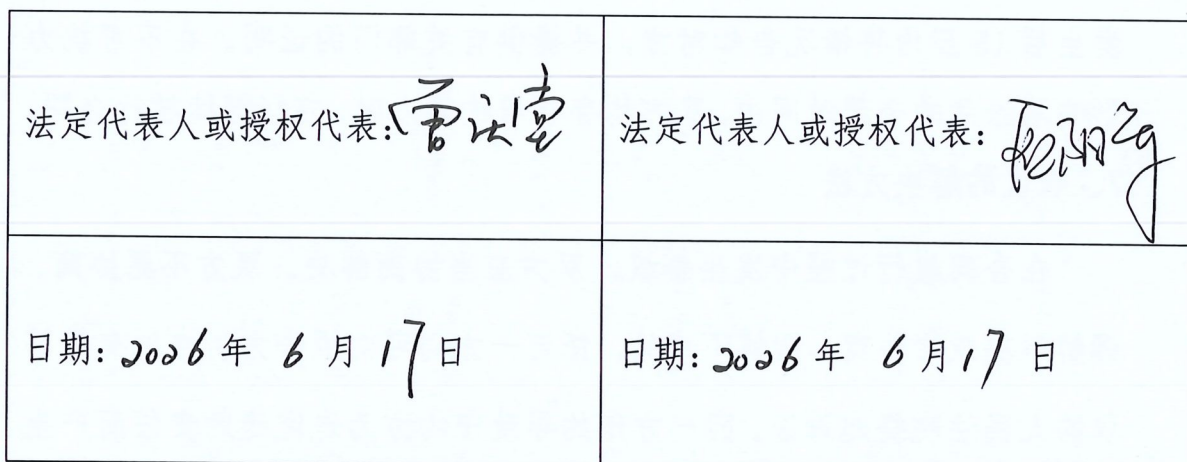 法定代表人或授权代表:
法定代表人或授权代表:
日期: 2026 年 6 月 17 日
日期: 2026 年 6 月 17 日